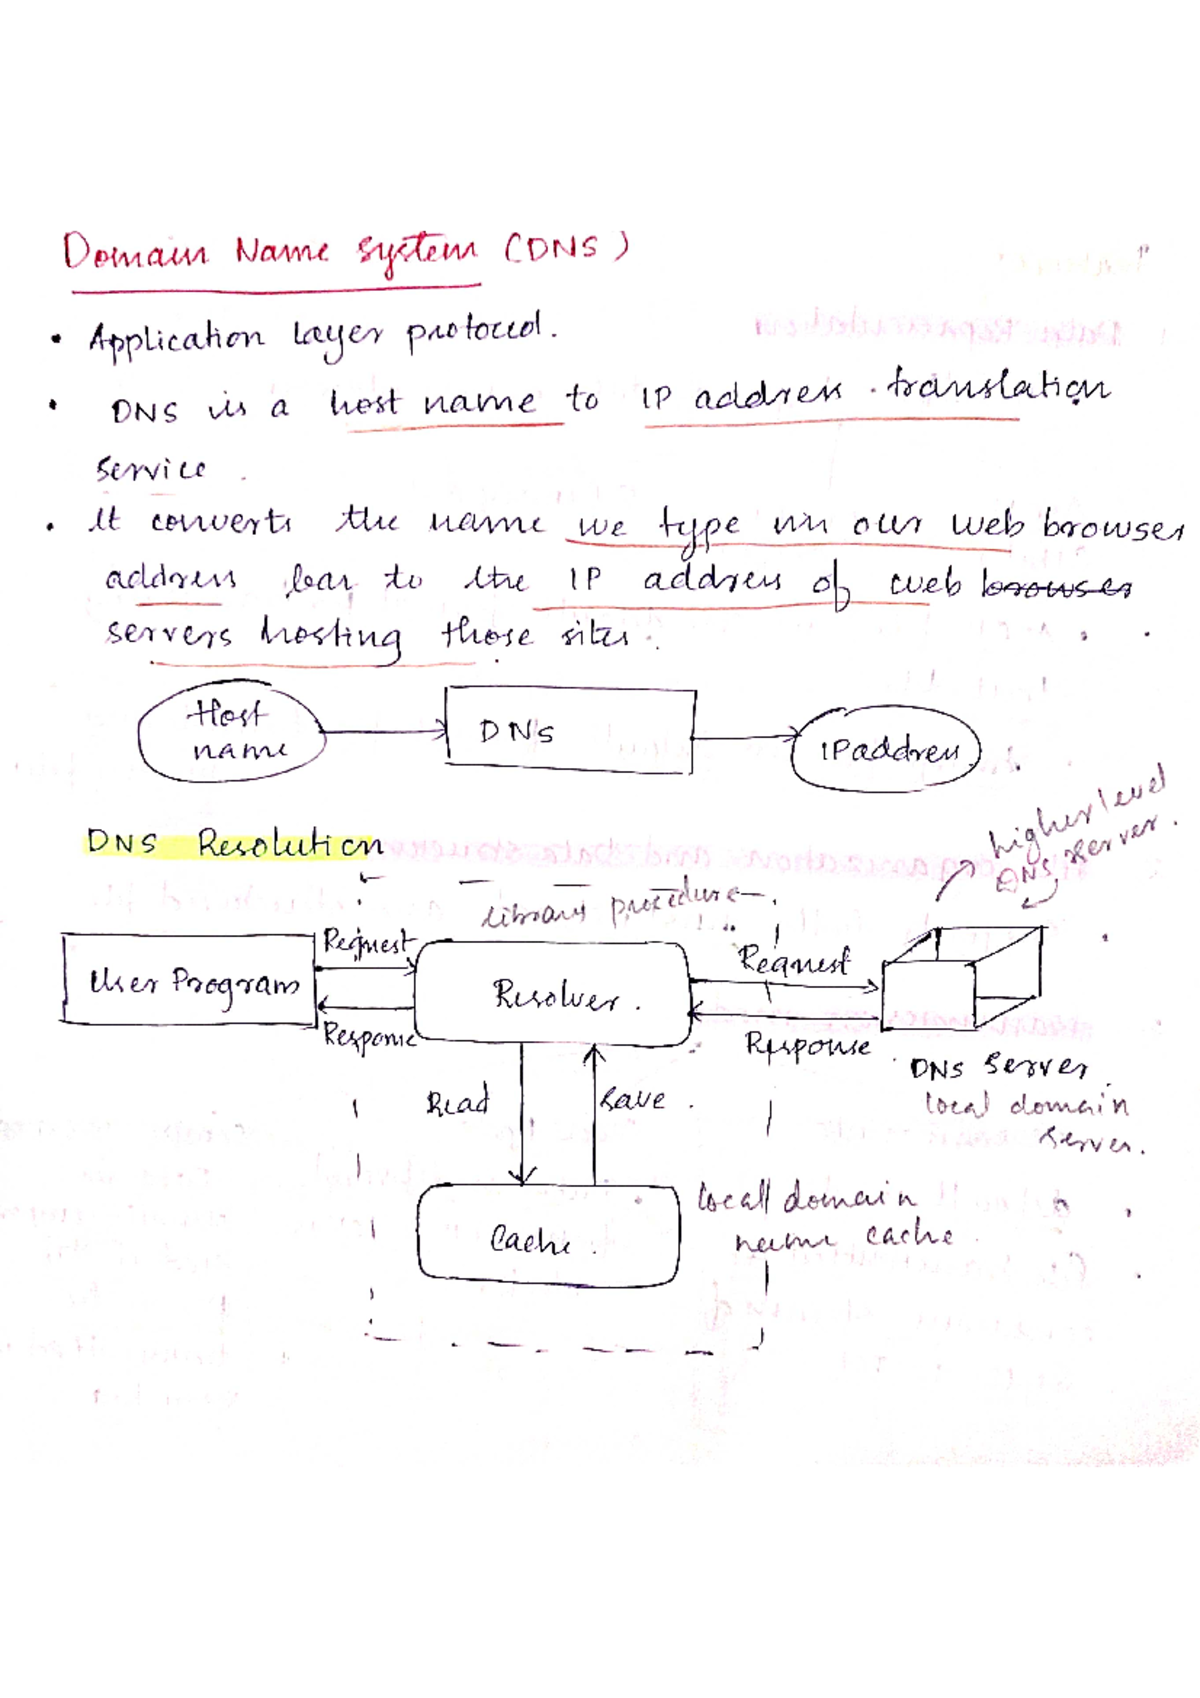 Domain Name System (DNS)
• Application layer protocol.
• DNS is a host name to IP address translation
service.
• It converts the name we type in our web browser
address bar to the IP address of web browser
servers hosting those sites.
Host
name
DNS
IP address
DNS Resolution
higher level
DNS server.
library procedure
Request
Request
User Program
Resolver.
Response
Response
DNS Server
local domain
server.
Read
Save.
locall domain
name cache
Cache.